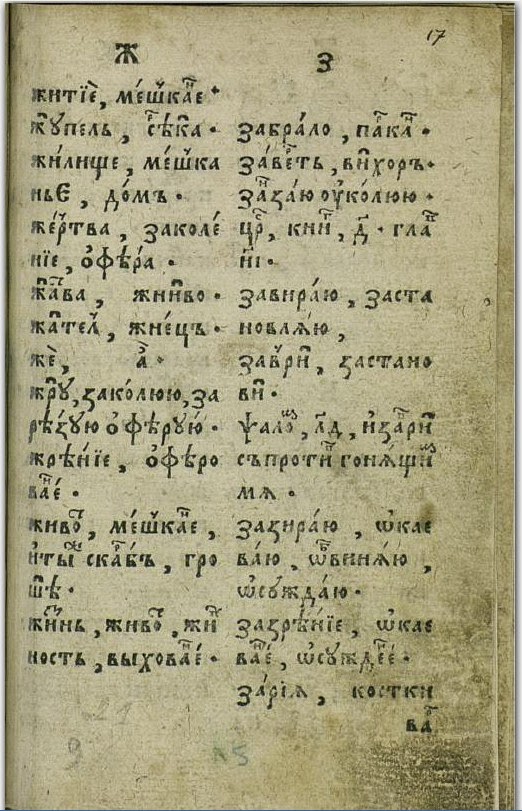 17
Ж
житїе, мешканⷷе
жꙋпель, сѣⷬка.
жилище, мешка
ньє, домъ.
жертва, заколе
нїе, офѣра.
жатва, жниво.
жателⸯ, жнецъ.
же, а.
жрꙋ, заколюю, за
рѣзꙋю офѣрꙋю.
жренїе, офѣро
ванⷷе.
животⸯ, мешканⷷе,
итыⷤ скарбъ, гро
шѣ.
жизнь, животⸯ, жиⷡ
ность, выхованⷷе.
З
забрало, парⷦканⸯ.
завѣть, вихоръ.
занзаю ᲂуколюю.
цⷬ҇, книⷢ, д҃. глаⷡ
н҃і.
завираю, заста
новлѧю,
заври, застано
ви.
ѱаломⸯ, л҃д, и заври
съпротиⷡ гонѧщиⷯ
мѧ.
зазираю, ѡкае
ваю, ѡбвинѧю,
ѡсꙋждаю.
зазренїе, ѡкае
ванⷷе, ѡсꙋжденⷷе.
зарїѧ, костки
ваⷬ